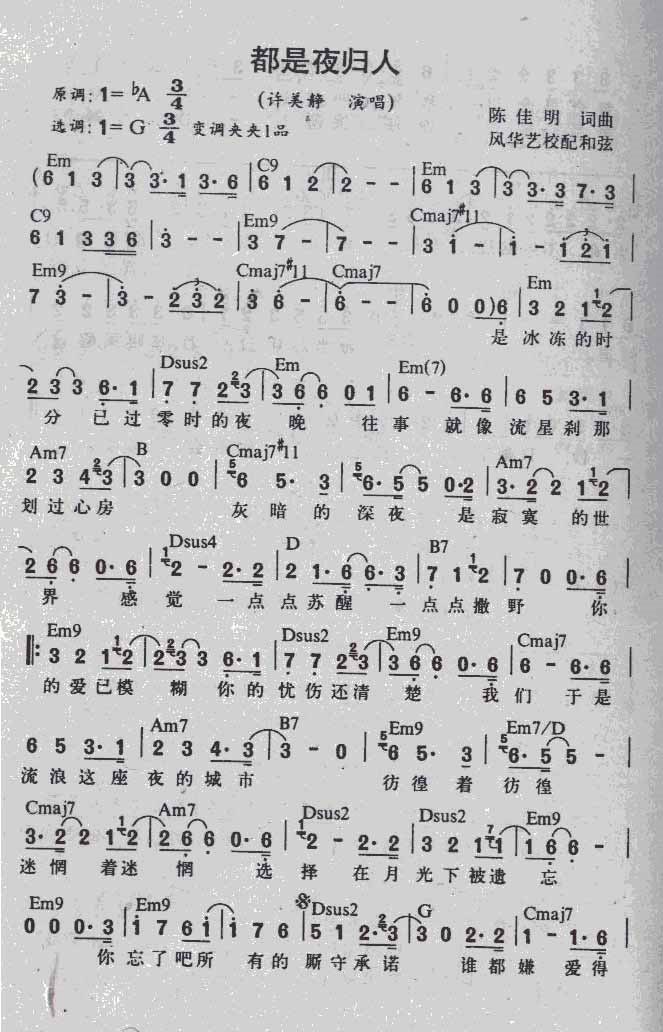 都是夜归人
原调:1=♭A 3/4
(许美静 演唱)
陈佳明 词曲
选调:1=G 3/4 变调夹夹1品
风华艺校配和弦
Em C9 Em
(6 1 3 | 3 3·1 3·6 | 6 1 2 | 2 - - | 6 1 3 | 3 3·3 7·3 |
C9 Em9 Cmaj7#11
6 1 3 3 6 | 3 - - | 3 7 - | 7 - - | 3 1 - | 1 - 1 2 1 |
Em9 Cmaj7#11 Cmaj7 Em
7 3 - | 3 - 2 3 2 | 3 6 - | 6 - - | 6 0 0) 6 | 3 2 1 2 |
是 冰 冻 的 时
Dsus2 Em Em(7)
2 3 3 6·1 | 7 7 2 3 | 3 6 6 0 1 | 6 - 6·6 | 6 5 3·1 |
分 已 过 零 时 的 夜 晚 往 事 就 像 流 星 刹 那
Am7 B Cmaj7#11 Am7
2 3 4 3 | 3 0 0 | 6 5· 3 | 6·5 5 0·2 | 3·2 2 1 2 |
划 过 心 房 灰 暗 的 深 夜 是 寂 寞 的 世
Dsus4 D B7
2 6 6 0·6 | 2 - 2·2 | 2 1·6 6·3 | 7 1 2 | 7 0 0·6 |
界 感 觉 一 点 点 苏 醒 一 点 点 撒 野 你
Em9 Dsus2 Em9 Cmaj7
‖: 3 2 1 2 | 2 3 3 6·1 | 7 7 2 3 | 3 6 6 0·6 | 6 - 6·6 |
的 爱 已 模 糊 你 的 忧 伤 还 清 楚 我 们 于 是
Am7 B7 Em9 Em7/D
6 5 3·1 | 2 3 4·3 | 3 - 0 | 6 5· 3 | 6·5 5 - |
流 浪 这 座 夜 的 城 市 彷 徨 着 彷 徨
Cmaj7 Am7 Dsus2 Dsus2 Em9
3·2 2 1 2 | 2 6 6 0·6 | 2 - 2·2 | 3 2 1 1 | 1 6 6 - |
迷 惘 着 迷 惘 选 择 在 月 光 下 被 遗 忘
Em9 Em9 Dsus2 G Cmaj7
0 0 0·3 | 1 7 6 1 | 1 7 6 | 5 1 2·3 | 3 0 2·2 | 1 - 1·6 |
你 忘 了 吧 所 有 的 厮 守 承 诺 谁 都 嫌 爱 得